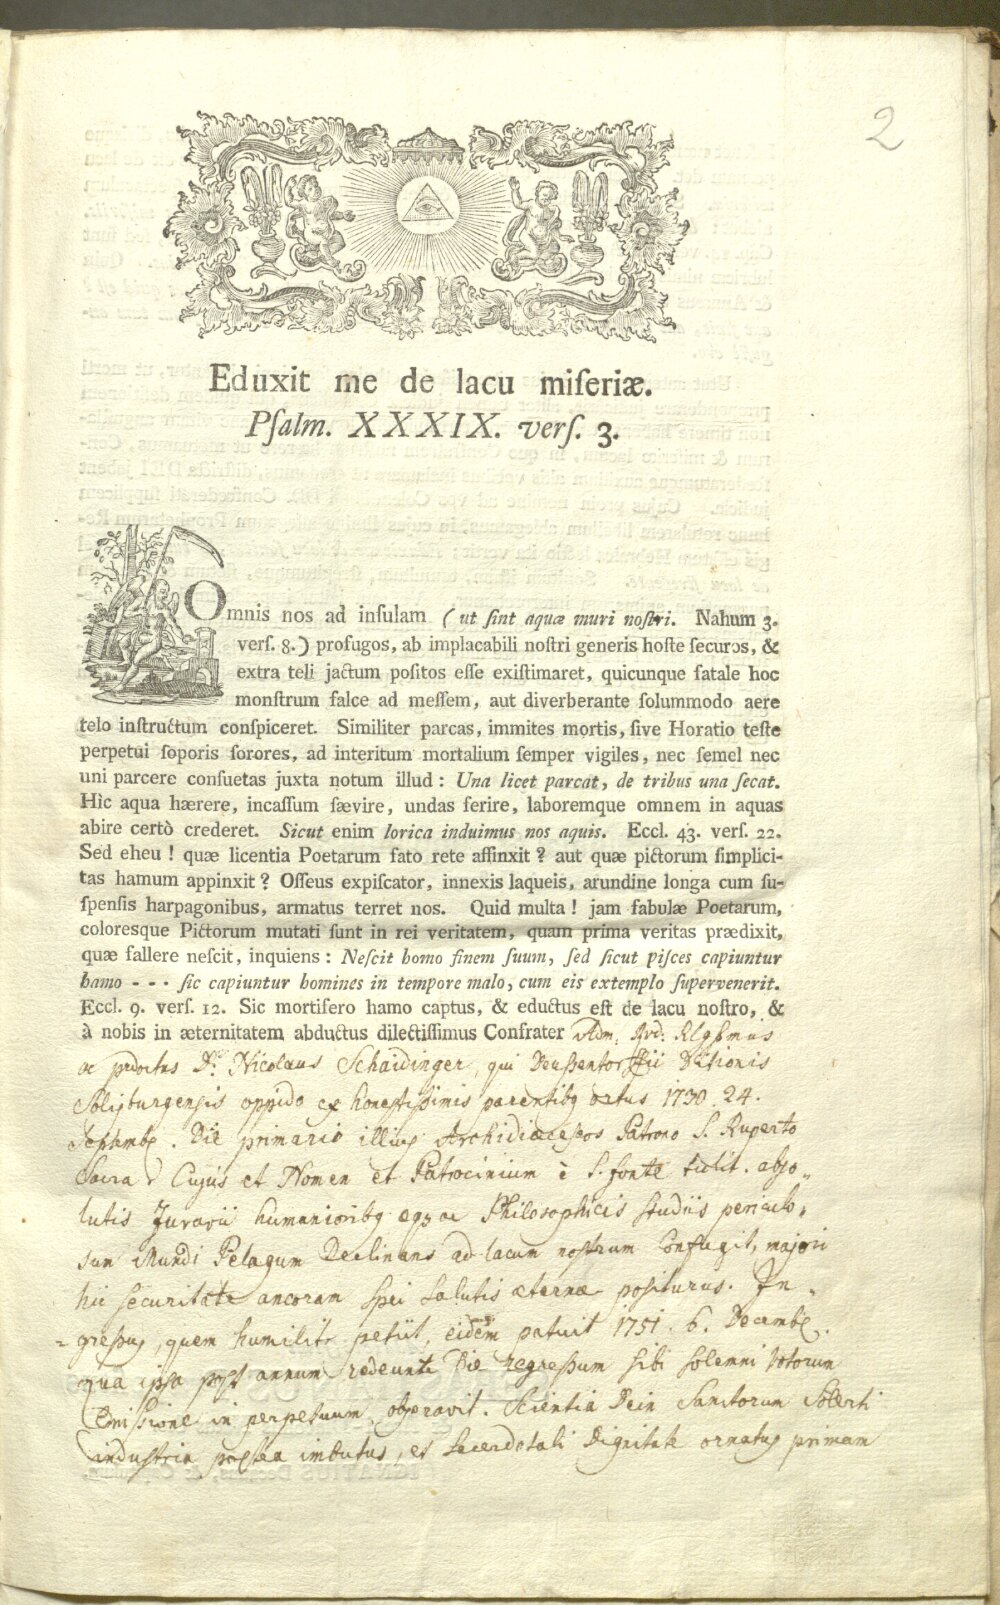 2
Eduxit me de lacu miſeriæ.
Pſalm. XXXIX. verſ. 3.
Omnis nos ad inſulam (ut ſint aquæ muri noſtri. Nahum 3.
verſ. 8.) profugos, ab implacabili noſtri generis hoſte ſecuros, &
extra teli jactum poſitos eſſe exiſtimaret, quicunque fatale hoc
monſtrum falce ad meſſem, aut diverberante ſolummodo aere
telo inſtructum conſpiceret. Similiter parcas, immites mortis, ſive Horatio teſte
perpetui ſoporis ſorores, ad interitum mortalium ſemper vigiles, nec ſemel nec
uni parcere conſuetas juxta notum illud : Una licet parcat, de tribus una ſecat.
Hìc aqua hærere, incaſſum ſævire, undas ferire, laboremque omnem in aquas
abire certò crederet. Sicut enim lorica induimus nos aquis. Eccl. 43. verſ. 22.
Sed eheu ! quæ licentia Poetarum fato rete affinxit ? aut quæ pictorum ſimplici-
tas hamum appinxit ? Oſſeus expiſcator, innexis laqueis, arundine longa cum ſu-
ſpenſis harpagonibus, armatus terret nos. Quid multa ! jam fabulæ Poetarum,
coloresque Pictorum mutati ſunt in rei veritatem, quam prima veritas prædixit,
quæ fallere neſcit, inquiens : Neſcit homo finem ſuum, ſed ſicut piſces capiuntur
hamo - - - ſic capiuntur homines in tempore malo, cum eis extemplo ſupervenerit.
Eccl. 9. verſ. 12. Sic mortifero hamo captus, & eductus eſt de lacu noſtro, &
à nobis in æternitatem abductus dilectiſſimus Confrater Adm. Rvd:
ac D: Nicolaus Schaidinger, qui Ditionis
oppido ex honestissimis parentibq ortus 1730. 24.
Septembr. Die primario illius Archidiœceseos Patrono S. Ruperto
Sacra Cujus et Nomen et Patrocinium è S. fonte tulit. abso„
lutis Juvavii humanioribq eqz ac Philosophicis studiis periculo„
sum Mundi Pelagum Declinans ad lacum nostrum confugit, majori
hic securitate ancoram spei salutis æternæ positurus. In„
gressus, quem humilitr petiit, eidem patuit 1751. 6. Decembr.
qua ipsa post annum redeunte Die regressum sibi solemni Votorum
Emissione in perpetuum, obseravit. Scientia Dein Sanctorum Solerti
industria postea imbutus, et Sacerdotali Dignitate ornatus primam